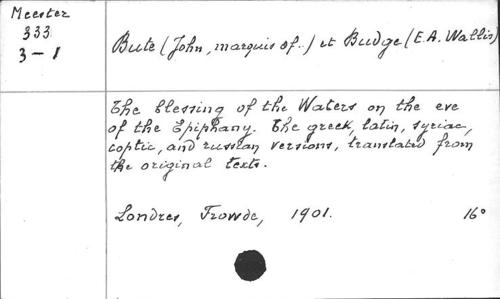 Meester
333
3-1
Bute (John, marquis of..) et Budge (E.A. Wallis)
The blessing of the Waters on the eve
of the Epiphany. The greek, latin, syriac,
coptic, and russian versions, translated from
the original texts.
Londres, Frowde, 1901. 16°